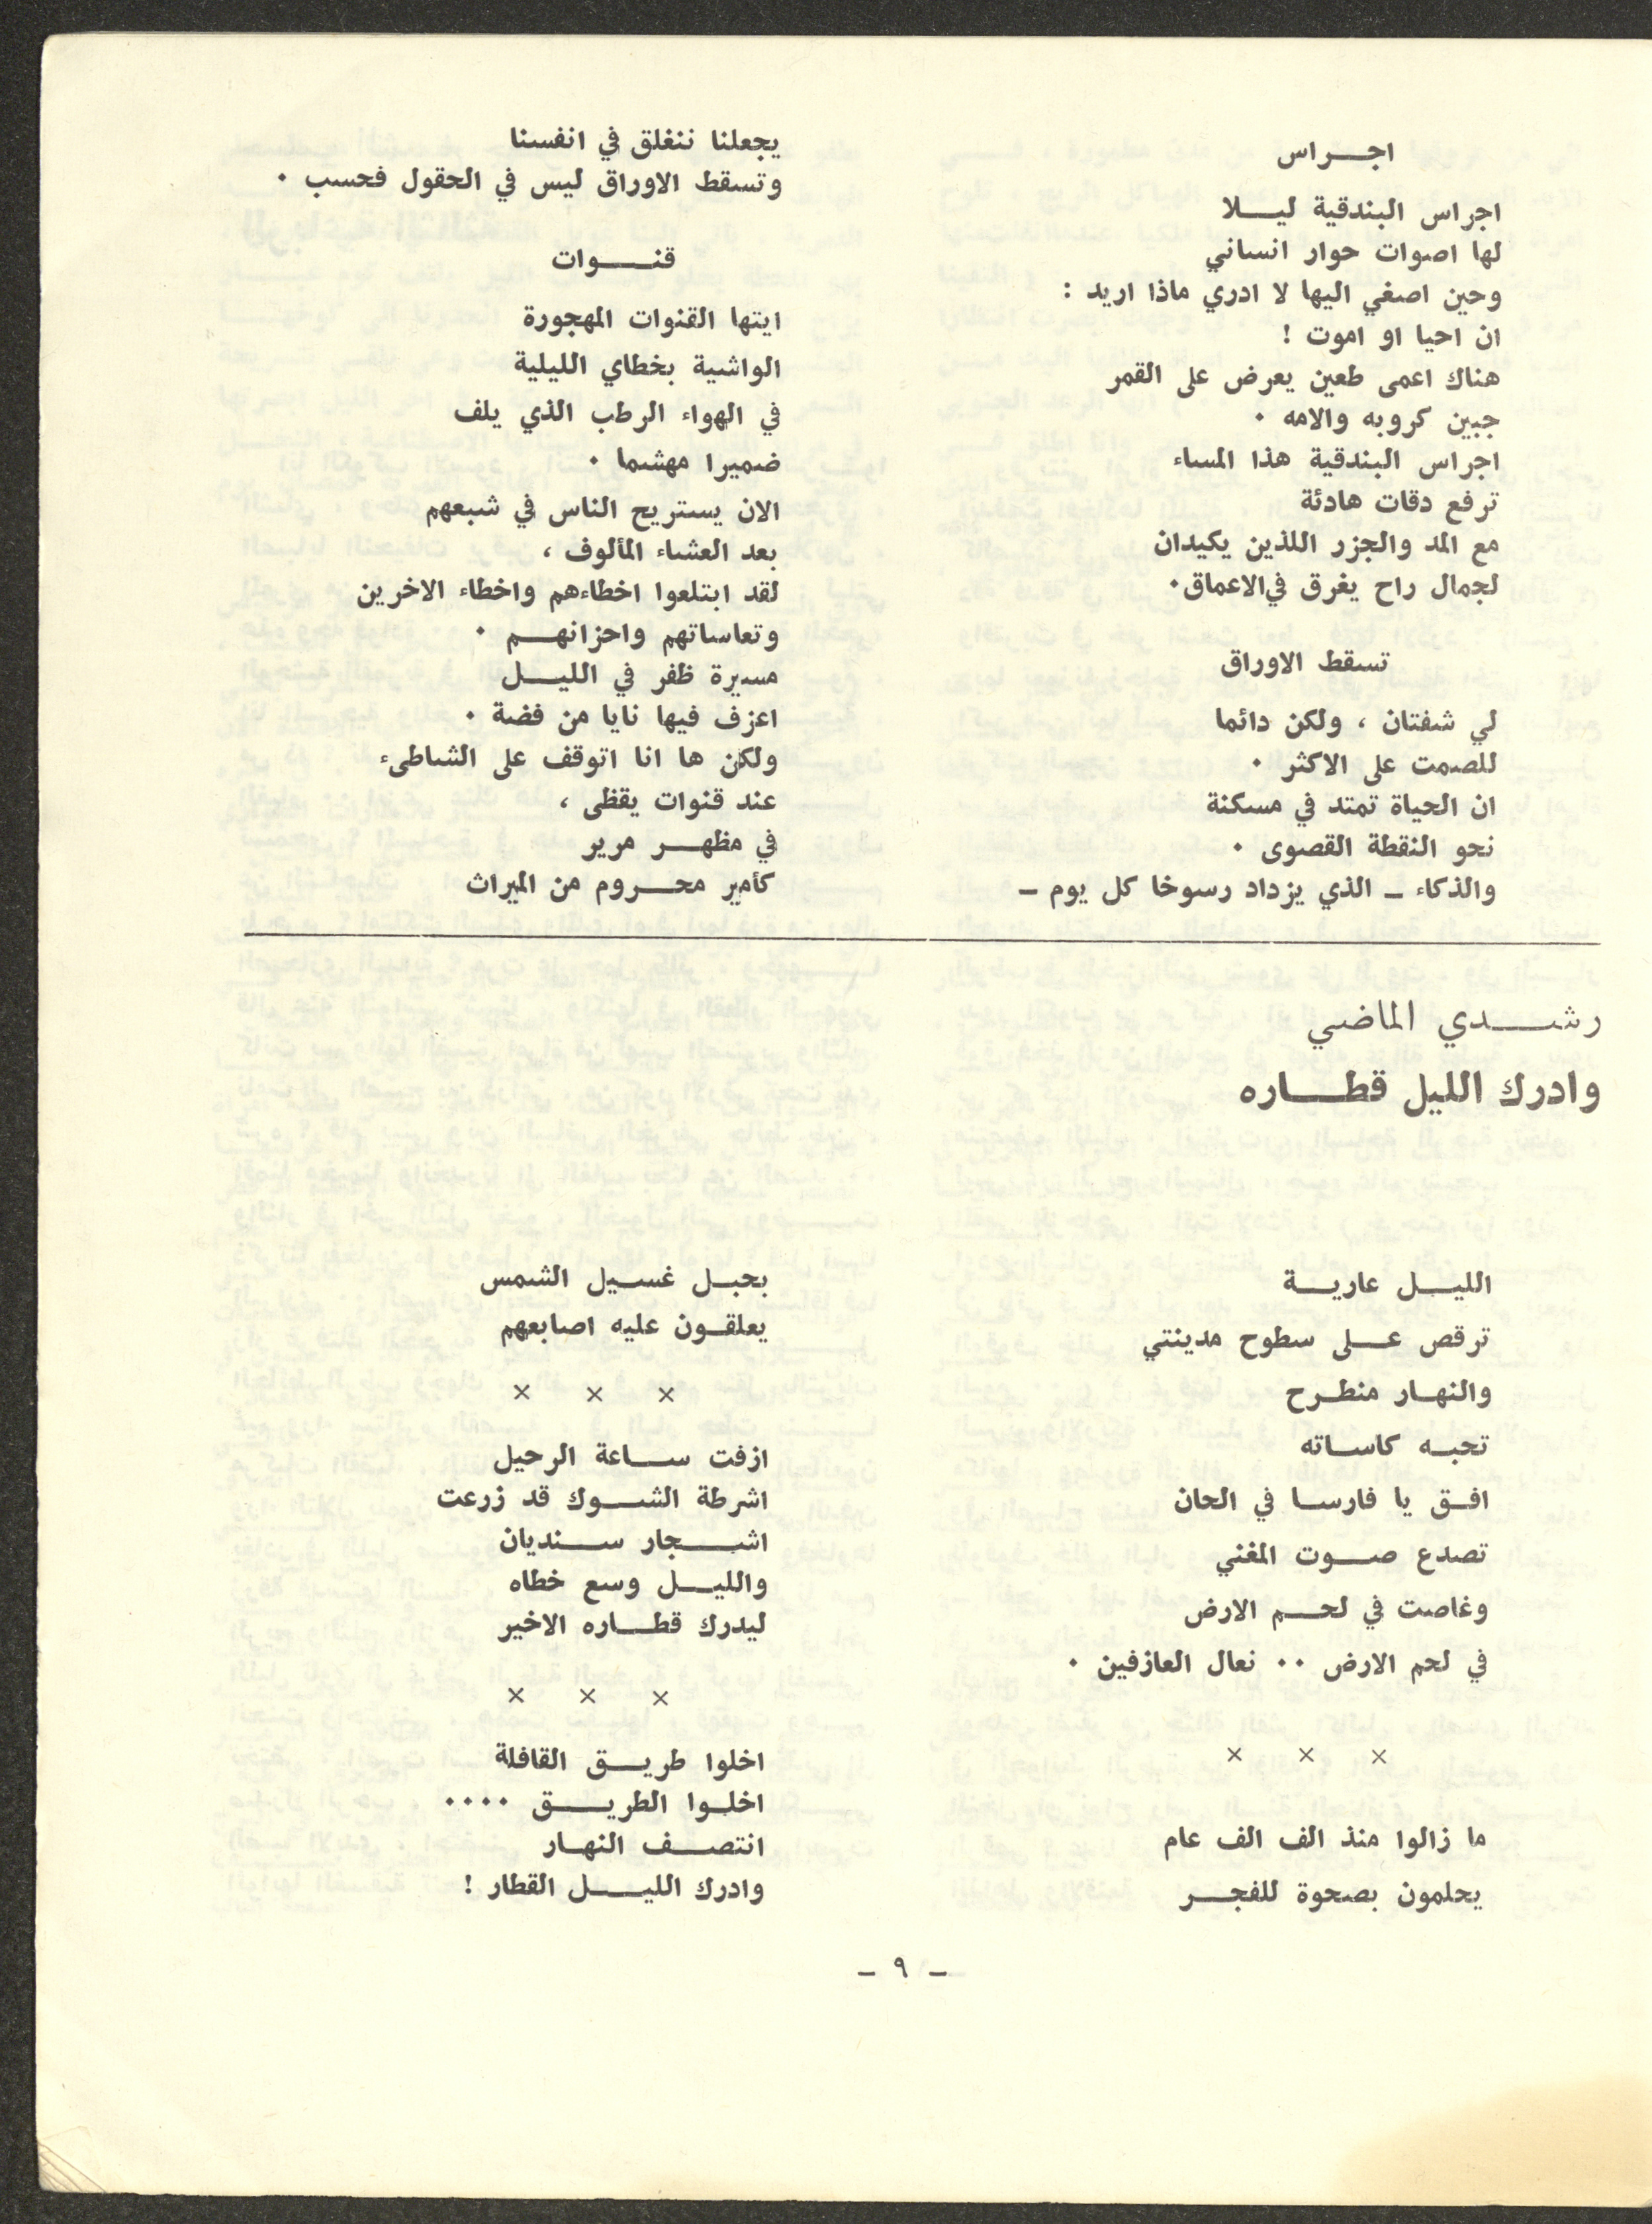 اجـــراس
اجراس البندقية ليـــلا
لها اصوات حوار انساني
وحين اصغي اليها لا ادري ماذا اريد :
ان احيا او اموت !
هناك اعمى طعين يعرض على القمر
جبين كروبه والامه ٠
اجراس البندقية هذا المساء
ترفع دقات هادئة
مع المد والجزر اللذين يكيدان
لجمال راح يغرق في الاعماق ٠
تسقط الاوراق
لي شفتان ، ولكن دائما
للصمت على الاكثر ٠
ان الحياة تمتد في مسكنة
نحو النقطة القصوى ٠
والذكاء ــ الذي يزداد رسوخا كل يوم ــ
يجعلنا ننغلق في انفسنا
وتسقط الاوراق ليس في الحقول فحسب ٠
قنـــوات
ايتها القنوات المهجورة
الواشية بخطاي الليلية
في الهواء الرطب الذي يلف
ضميرا مهشما ٠
الان يستريح الناس في شبعهم
بعد العشاء المألوف ،
لقد ابتلعوا اخطاءهم واخطاء الاخرين
وتعاساتهم واحزانهـــم ٠
مسيرة ظفر في الليـــل
اعزف فيها نايا من فضة ٠
ولكن ها انا اتوقف على الشاطىء
عند قنوات يقظى ،
في مظهـــر مرير
كأمير محـــروم من الميراث
رشـــدي الماضي
وادرك الليل قطـــاره
الليـــل عاريـــة
ترقص عـــلى سطوح مدينتي
والنهـار منطـرح
تحبـه كاسـاته
افـق يا فارسـا في الحان
تصدع صـــوت المغني
وغاصت في لحـــم الارض
في لحم الارض ٠٠ نعال العازفين ٠
× × ×
ما زالوا منذ الف الف عام
يحلمون بصحوة للفجـــر
بحبـل غسـيل الشمس
يعلقـون عليه اصابعهم
× × ×
ازفت ســاعة الرحيل
اشرطة الشـــوك قد زرعت
اشـــجار ســـنديان
والليـــل وسع خطاه
ليدرك قطـــاره الاخير
× × ×
اخلوا طريـــق القافلة
اخلـوا الطريـــق ٠٠٠٠
انتصـــف النهـار
وادرك الليـــل القطار !
ــ ٩ ــ